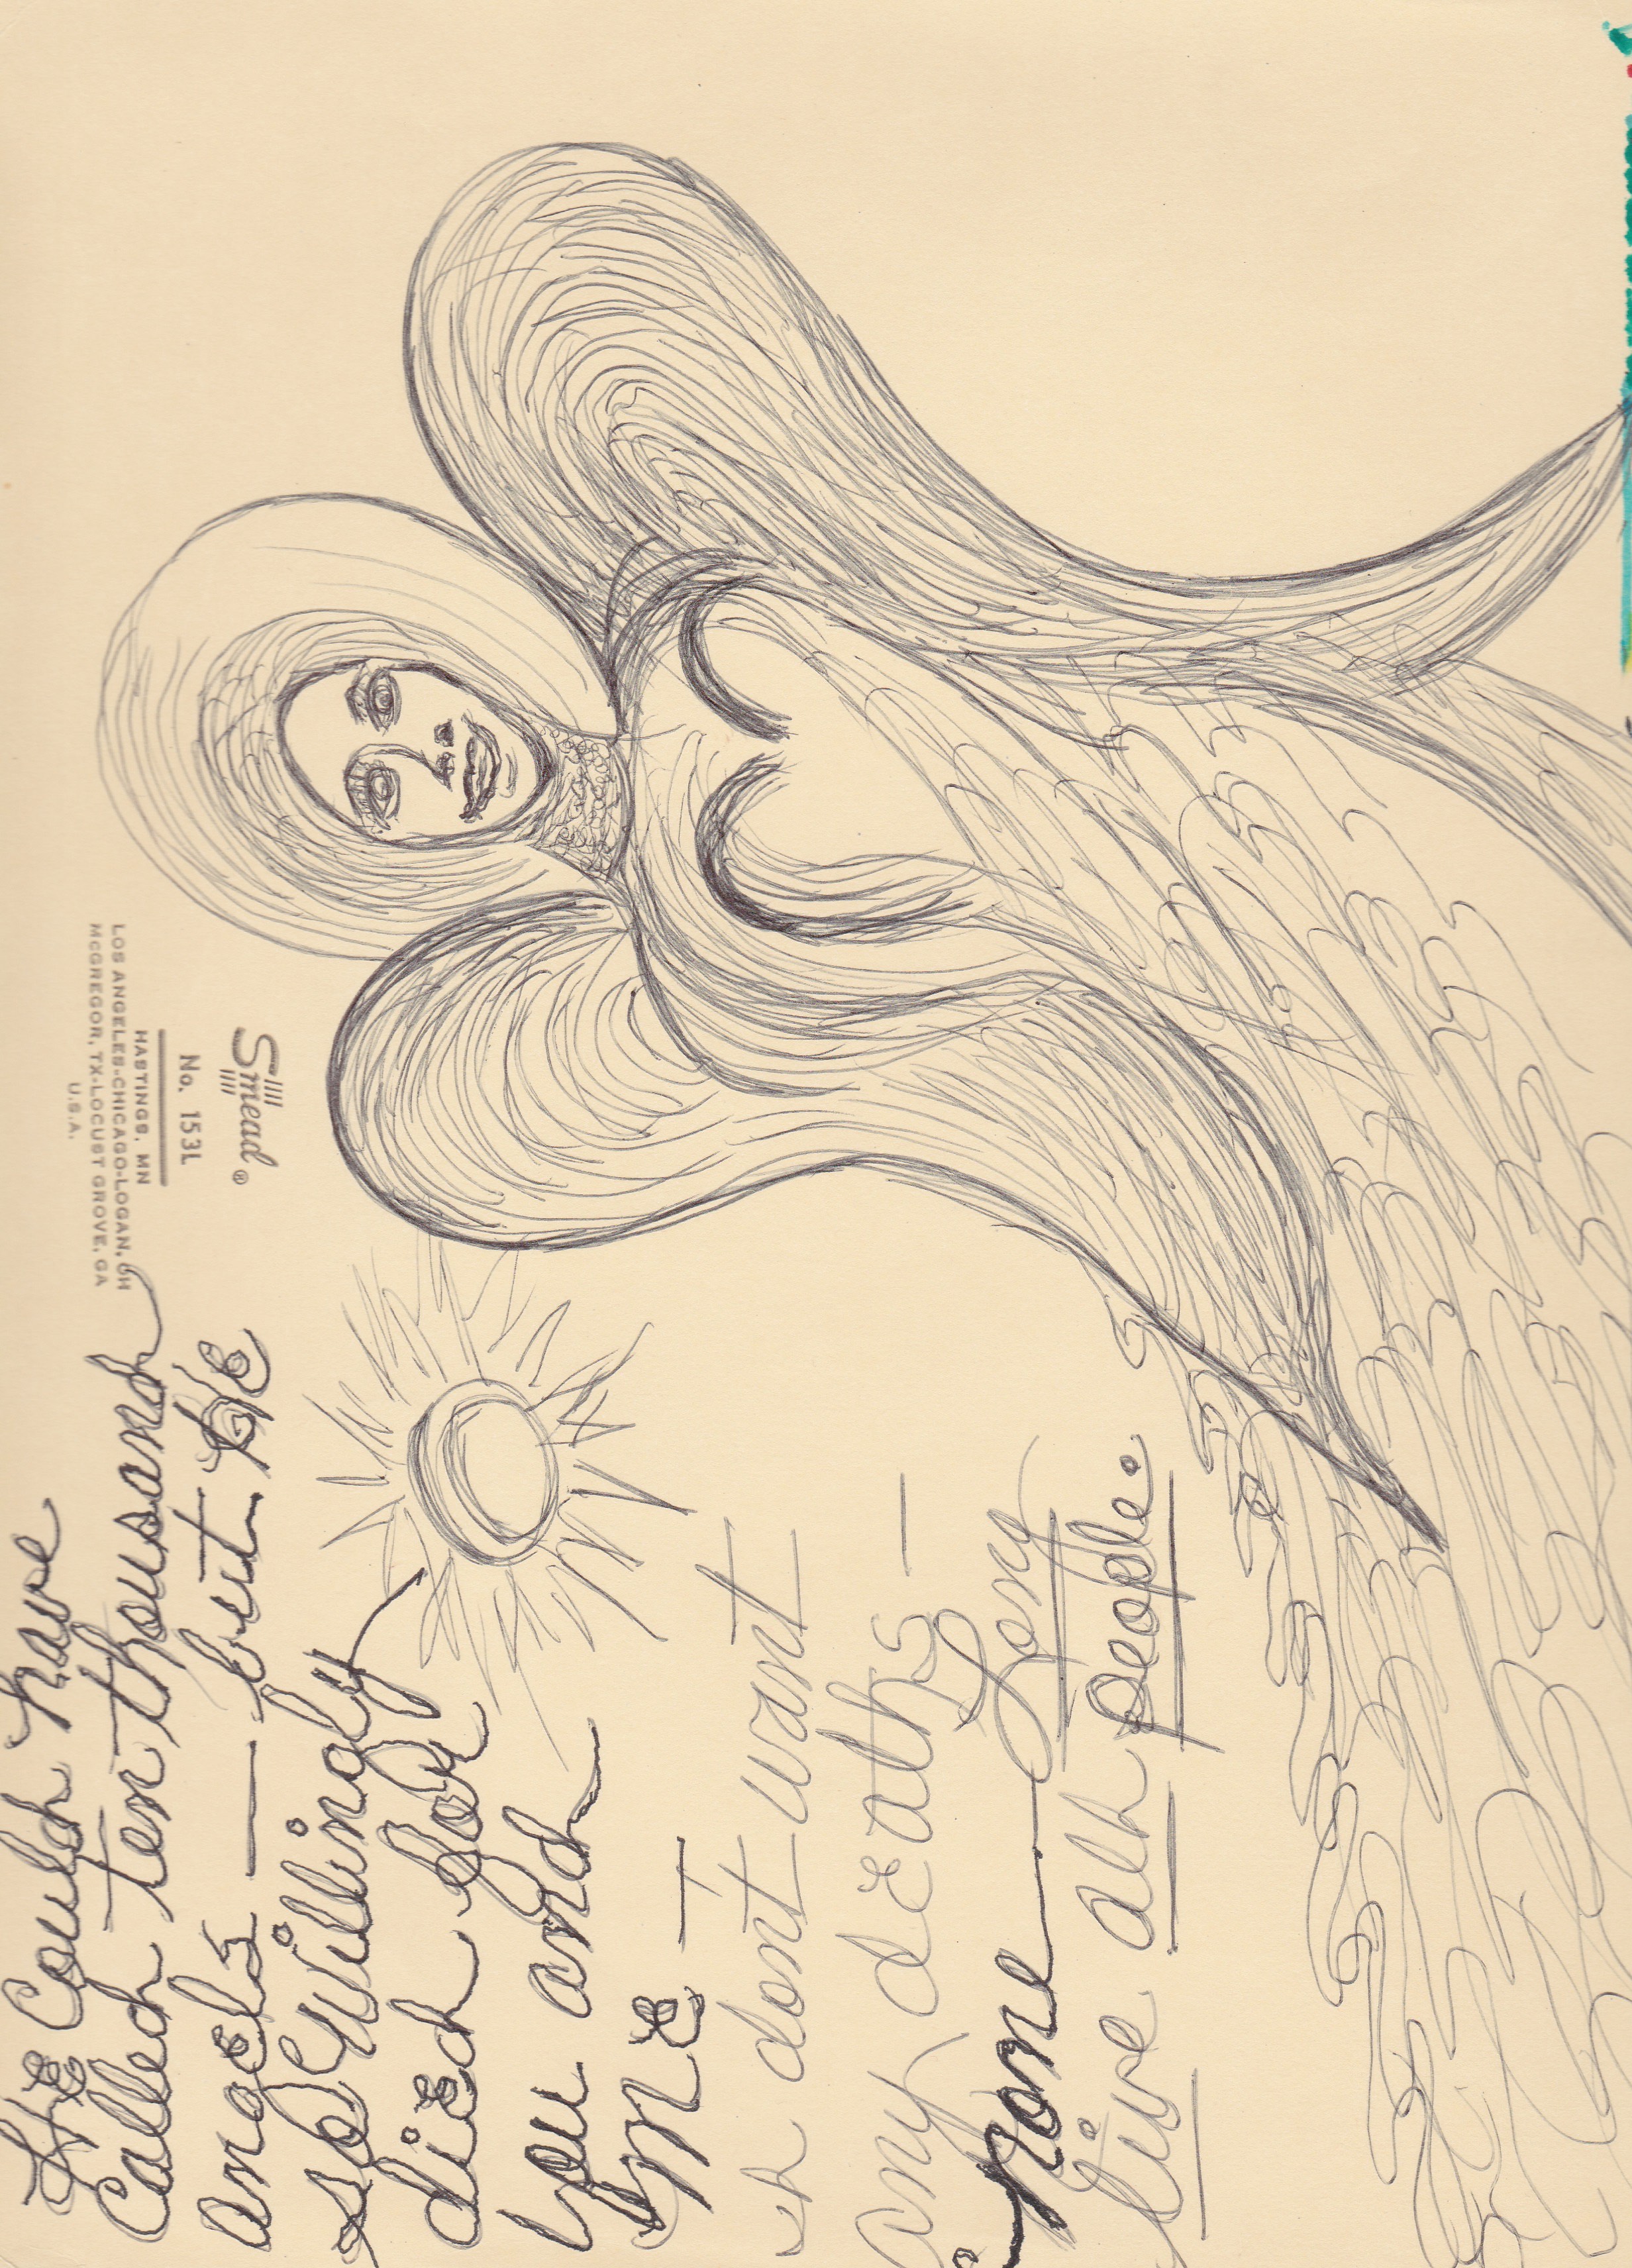 Smead®
No. 153L
HASTINGS, MN
LOS ANGELES-CHICAGO-LOGAN, OH
McGREGOR, TX-LOCUST GROVE, GA
U.S.A.
HE Could have
Called ten thousand
angEls — but HE
so Willingly
diEd for
you and
ME —
dont want
any dEaths —
none — Long
live all people.